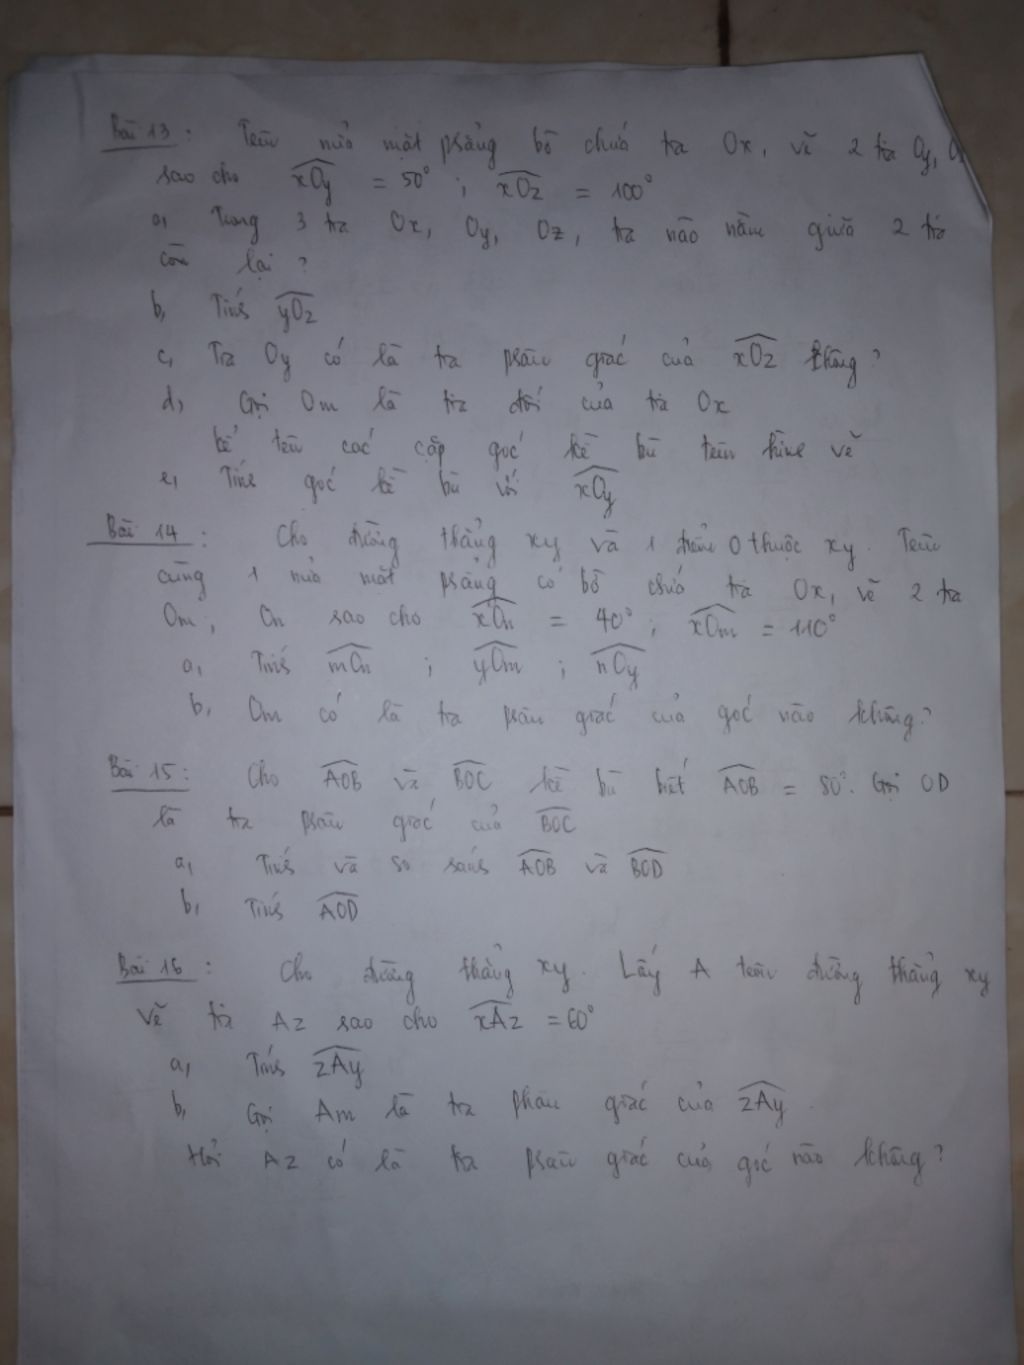 Bài 13 : Trên nửa mặt phẳng bờ chứa tia Ox, vẽ 2 tia Oy,
sao cho xOy = 50° ; xOz = 100°
a, Trong 3 tia Ox, Oy, Oz, tia nào nằm giữa 2 tia
còn lại ?
b, Tính yOz
c, Tia Oy có là tia phân giác của xOz không ?
d, Gọi Om là tia đối của tia Ox
kể tên các cặp góc kề bù trên hình vẽ
e, Tính góc kề bù với xOy
Bài 14 : Cho đường thẳng xy và 1 điểm O thuộc xy. Trên
cùng 1 nửa mặt phẳng có bờ chứa tia Ox, vẽ 2 tia
Om, On sao cho xOn = 40° ; xOm = 110°
a, Tính mOn ; yOm ; nOy
b, Om có là tia phân giác của góc nào không ?
Bài 15 : Cho AOB và BOC kề bù biết AOB = 80°. Gọi OD
là tia phân giác của BOC
a, Tính và so sánh AOB và BOD
b, Tính AOD
Bài 16 : Cho đường thẳng xy. Lấy A trên đường thẳng xy
Vẽ tia Az sao cho xAz = 60°
a, Tính zAy
b, Gọi Am là tia phân giác của zAy.
Hỏi Az có là tia phân giác của góc nào không ?